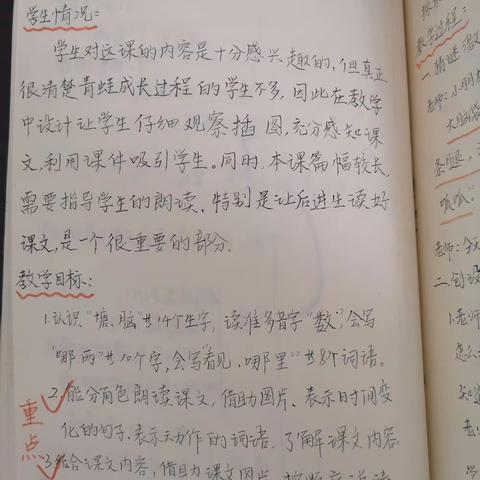 学生情况:
学生对这课的内容是十分感兴趣的,但真正
很清楚青蛙成长过程的学生不多,因此在教学
中设计让学生仔细观察插图,充分感知课
文,利用课件吸引学生。同时,本课篇幅较长,
需要指导学生的朗读,特别是让后进生读好
课文,是一个很重要的部分。
教学目标:
1.认识“塘、脑”共14个生字,读准多音字“数”,会写
“哪 两”共10个字,会写“看见、哪里”共8个词语。
2.能分角色朗读课文,借助图片、表示时间变
化的句子、表示动作的词语,了解课文内容。
重点
3.结合课文内容,借助课文图片,按顺序说
教学过程:
一.猜谜 激
老师:小朋
大脑袋
呱呱”
老师:今天
二.创设
1.老师
怎么
知道